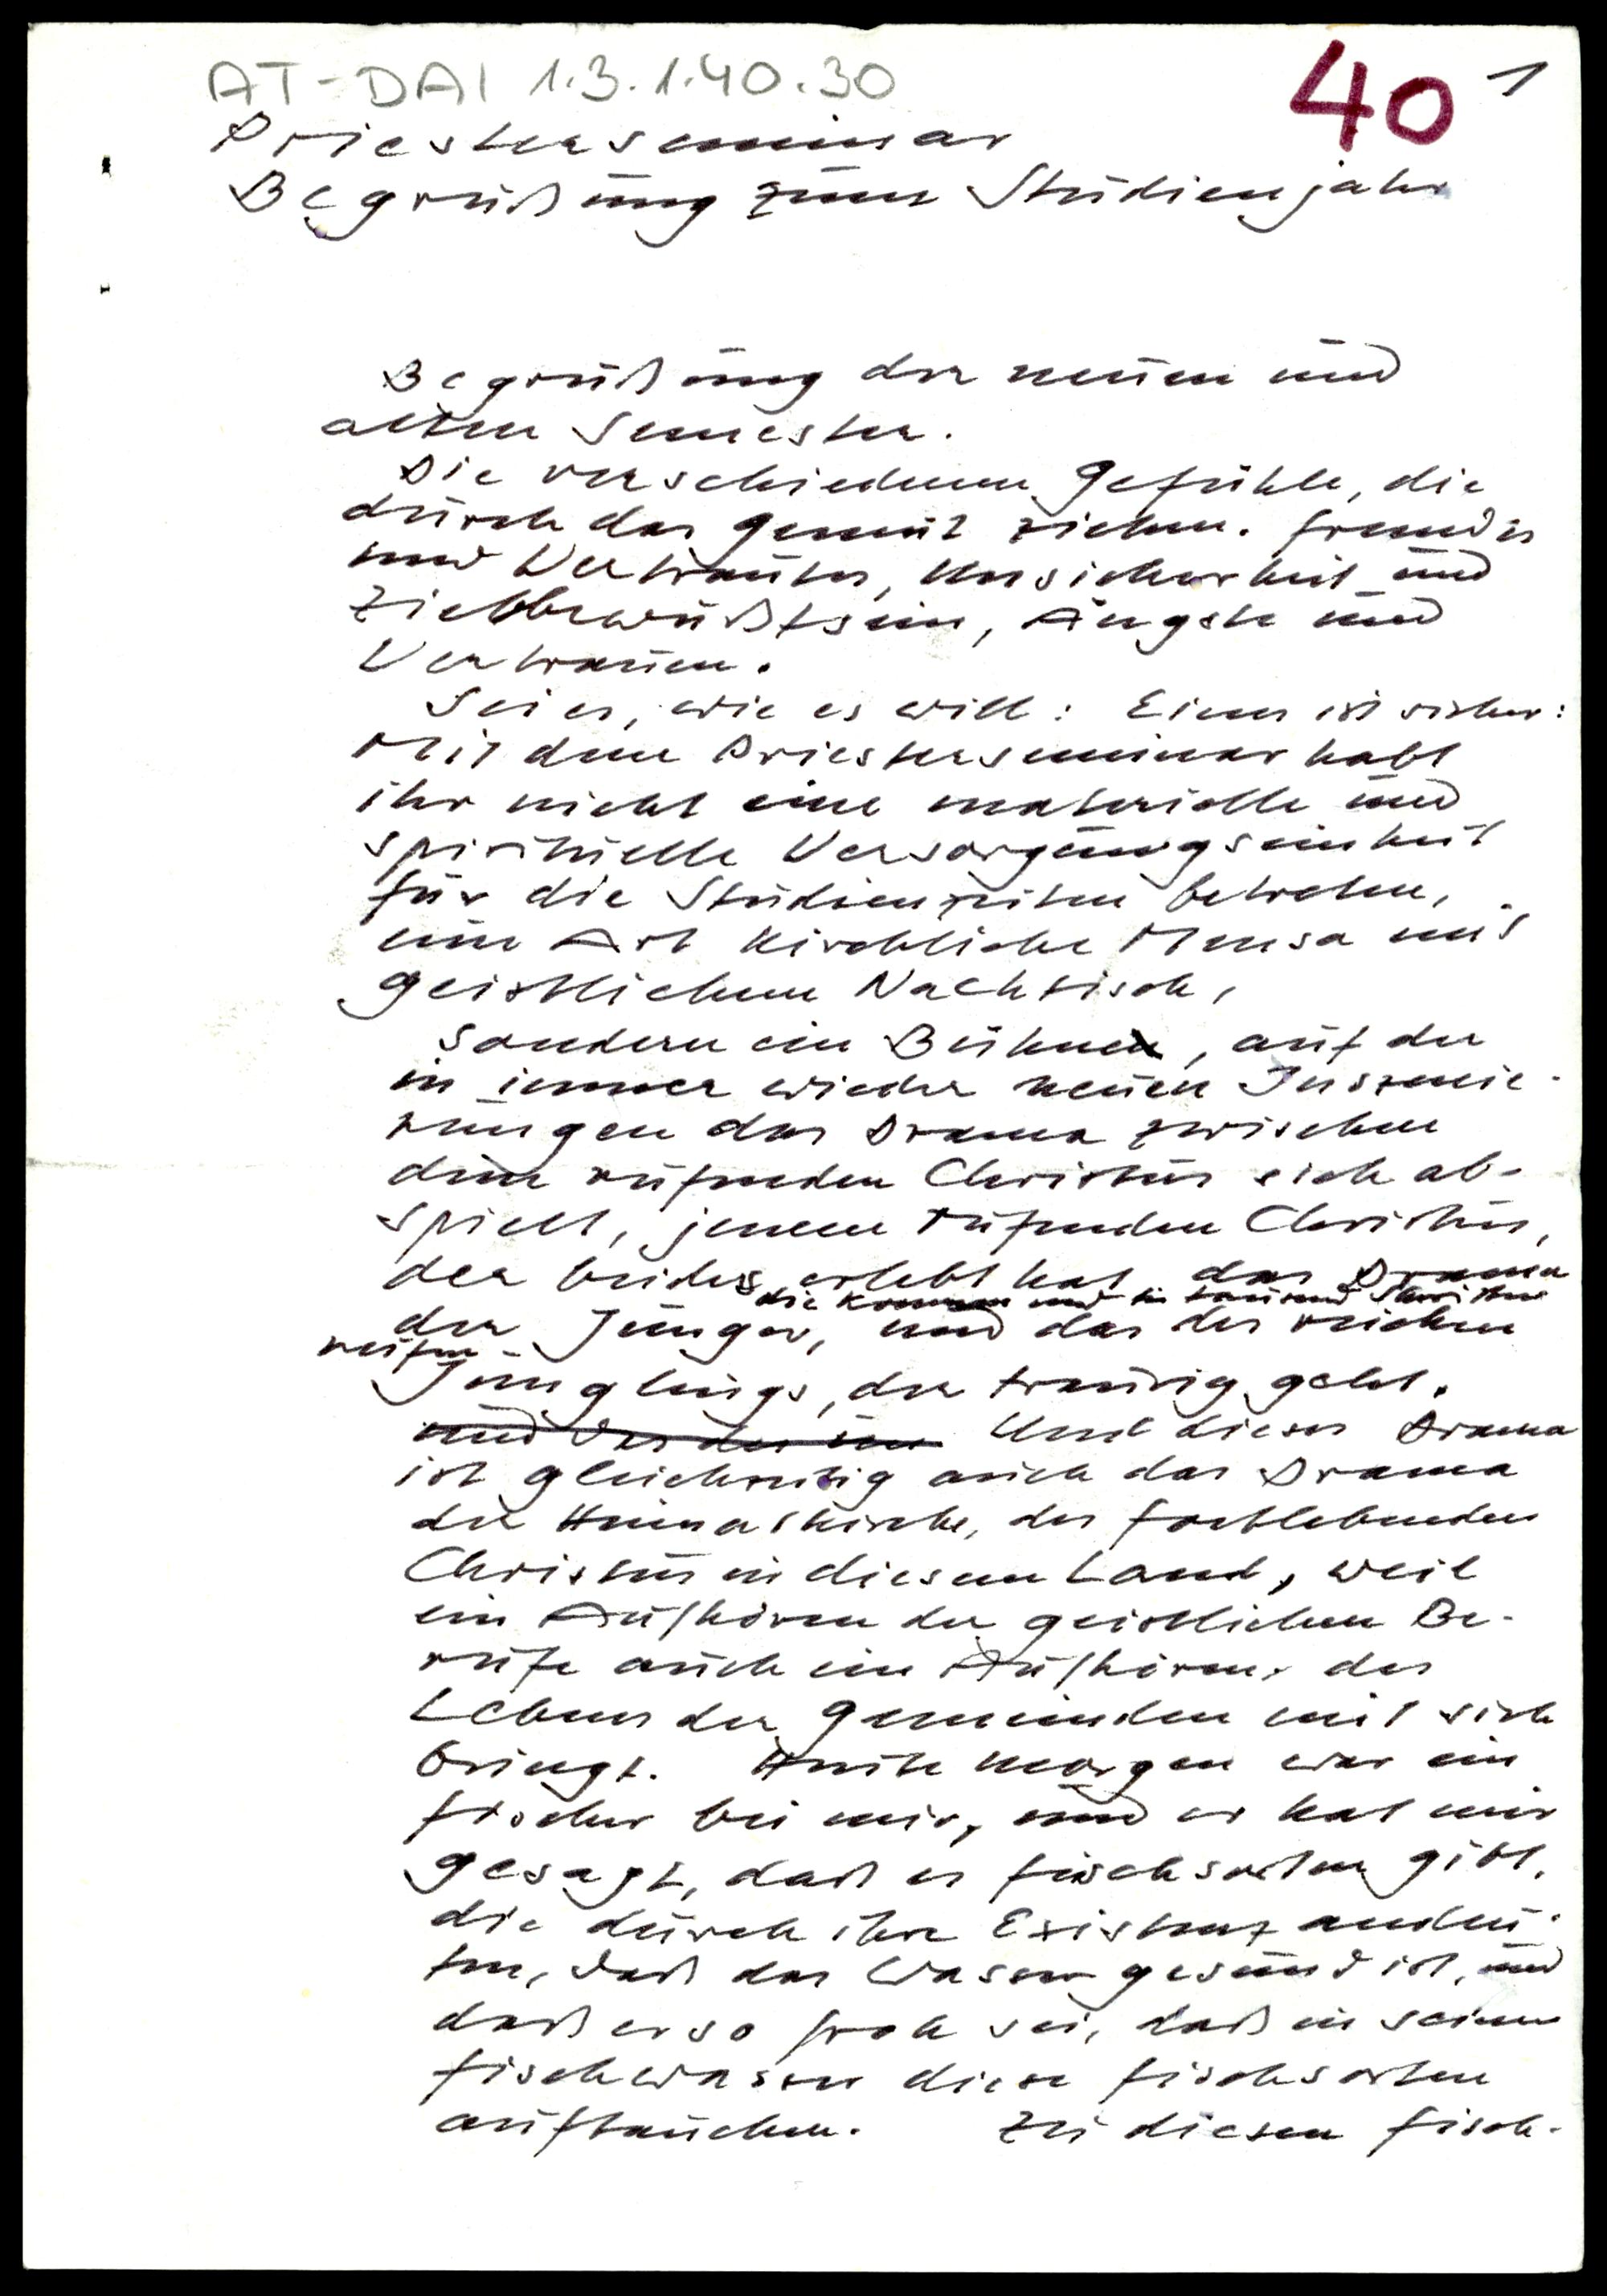 AT-DAI 1.3.1.40.30
40 1
Priesterseminar
Begrüßung zum Studienjahr
Begrüßung der neuen und
alten Semester.
Die verschiedenen Gefühle, die
durch das Gemüt ziehen. Fremdes
und Vertrautes, Unsicherheit und
Zielbewußtsein, Ängste und
Vertrauen.
Sei es, wie es will: Eines ist sicher:
Mit dem Priesterseminar habt
ihr nicht eine materielle und
spirituelle Versorgungseinheit
für die Studienzeiten betreten,
eine Art kirchliche Mensa mit
geistlichem Nachtisch,
sondern ein Bühne, auf der
in immer wieder neuen Inszenie-
rungen das Drama zwischen
dem rufenden Christus sich ab-
spielt, jenem rufenden Christus,
der beides erlebt hat, das Drama
die kommen und in tausend
der Jünger, und das des reichen
reifen
Jünglings, der traurig geht.
und das des Und dieses Drama
ist gleichzeitig auch das Drama
der Heimatkirche, des fortlebenden
Christus in diesem Land, weil
ein Aufhören der geistlichen Be-
rufe auch ein Aufhören des
Lebens der Gemeinden mit sich
bringt. Heute morgen war ein
Fischer bei mir, und er hat mir
gesagt, daß es Fischsorten gibt,
die durch ihre Existenz andeu-
ten, daß das Wasser gesund ist, und
daß er so froh sei, daß in seinem
Fischwasser diese Fischsorten
auftauchen. Zu diesen Fisch-